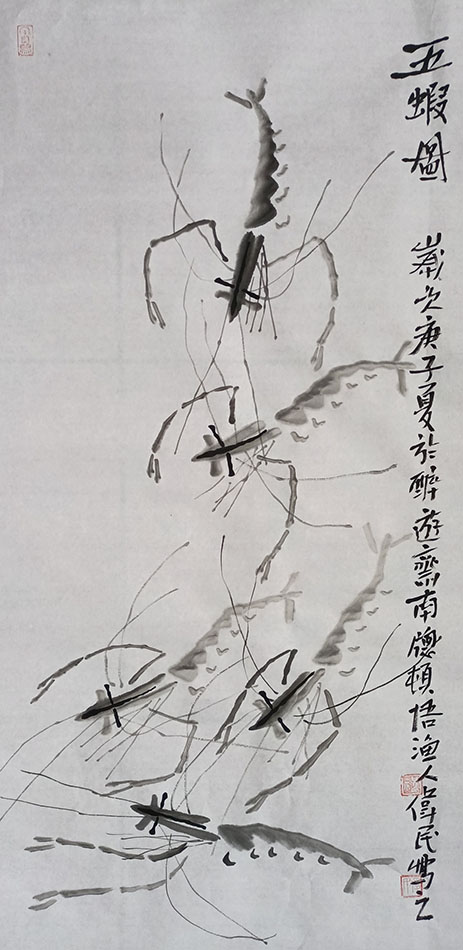 五蝦圖
歲次庚子夏於醉遊齋南牕頓悟漁人偉民寫之